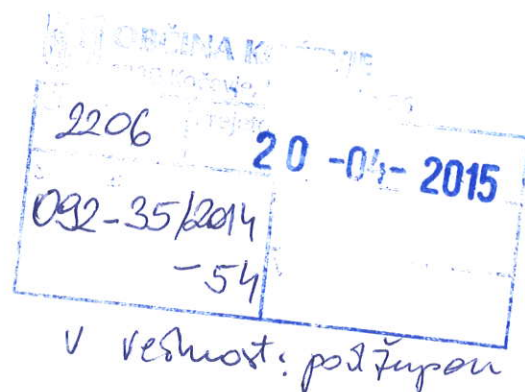 OBČINA
2206
20 -04- 2015
092-35/2014
-54
V vednost: podžupan